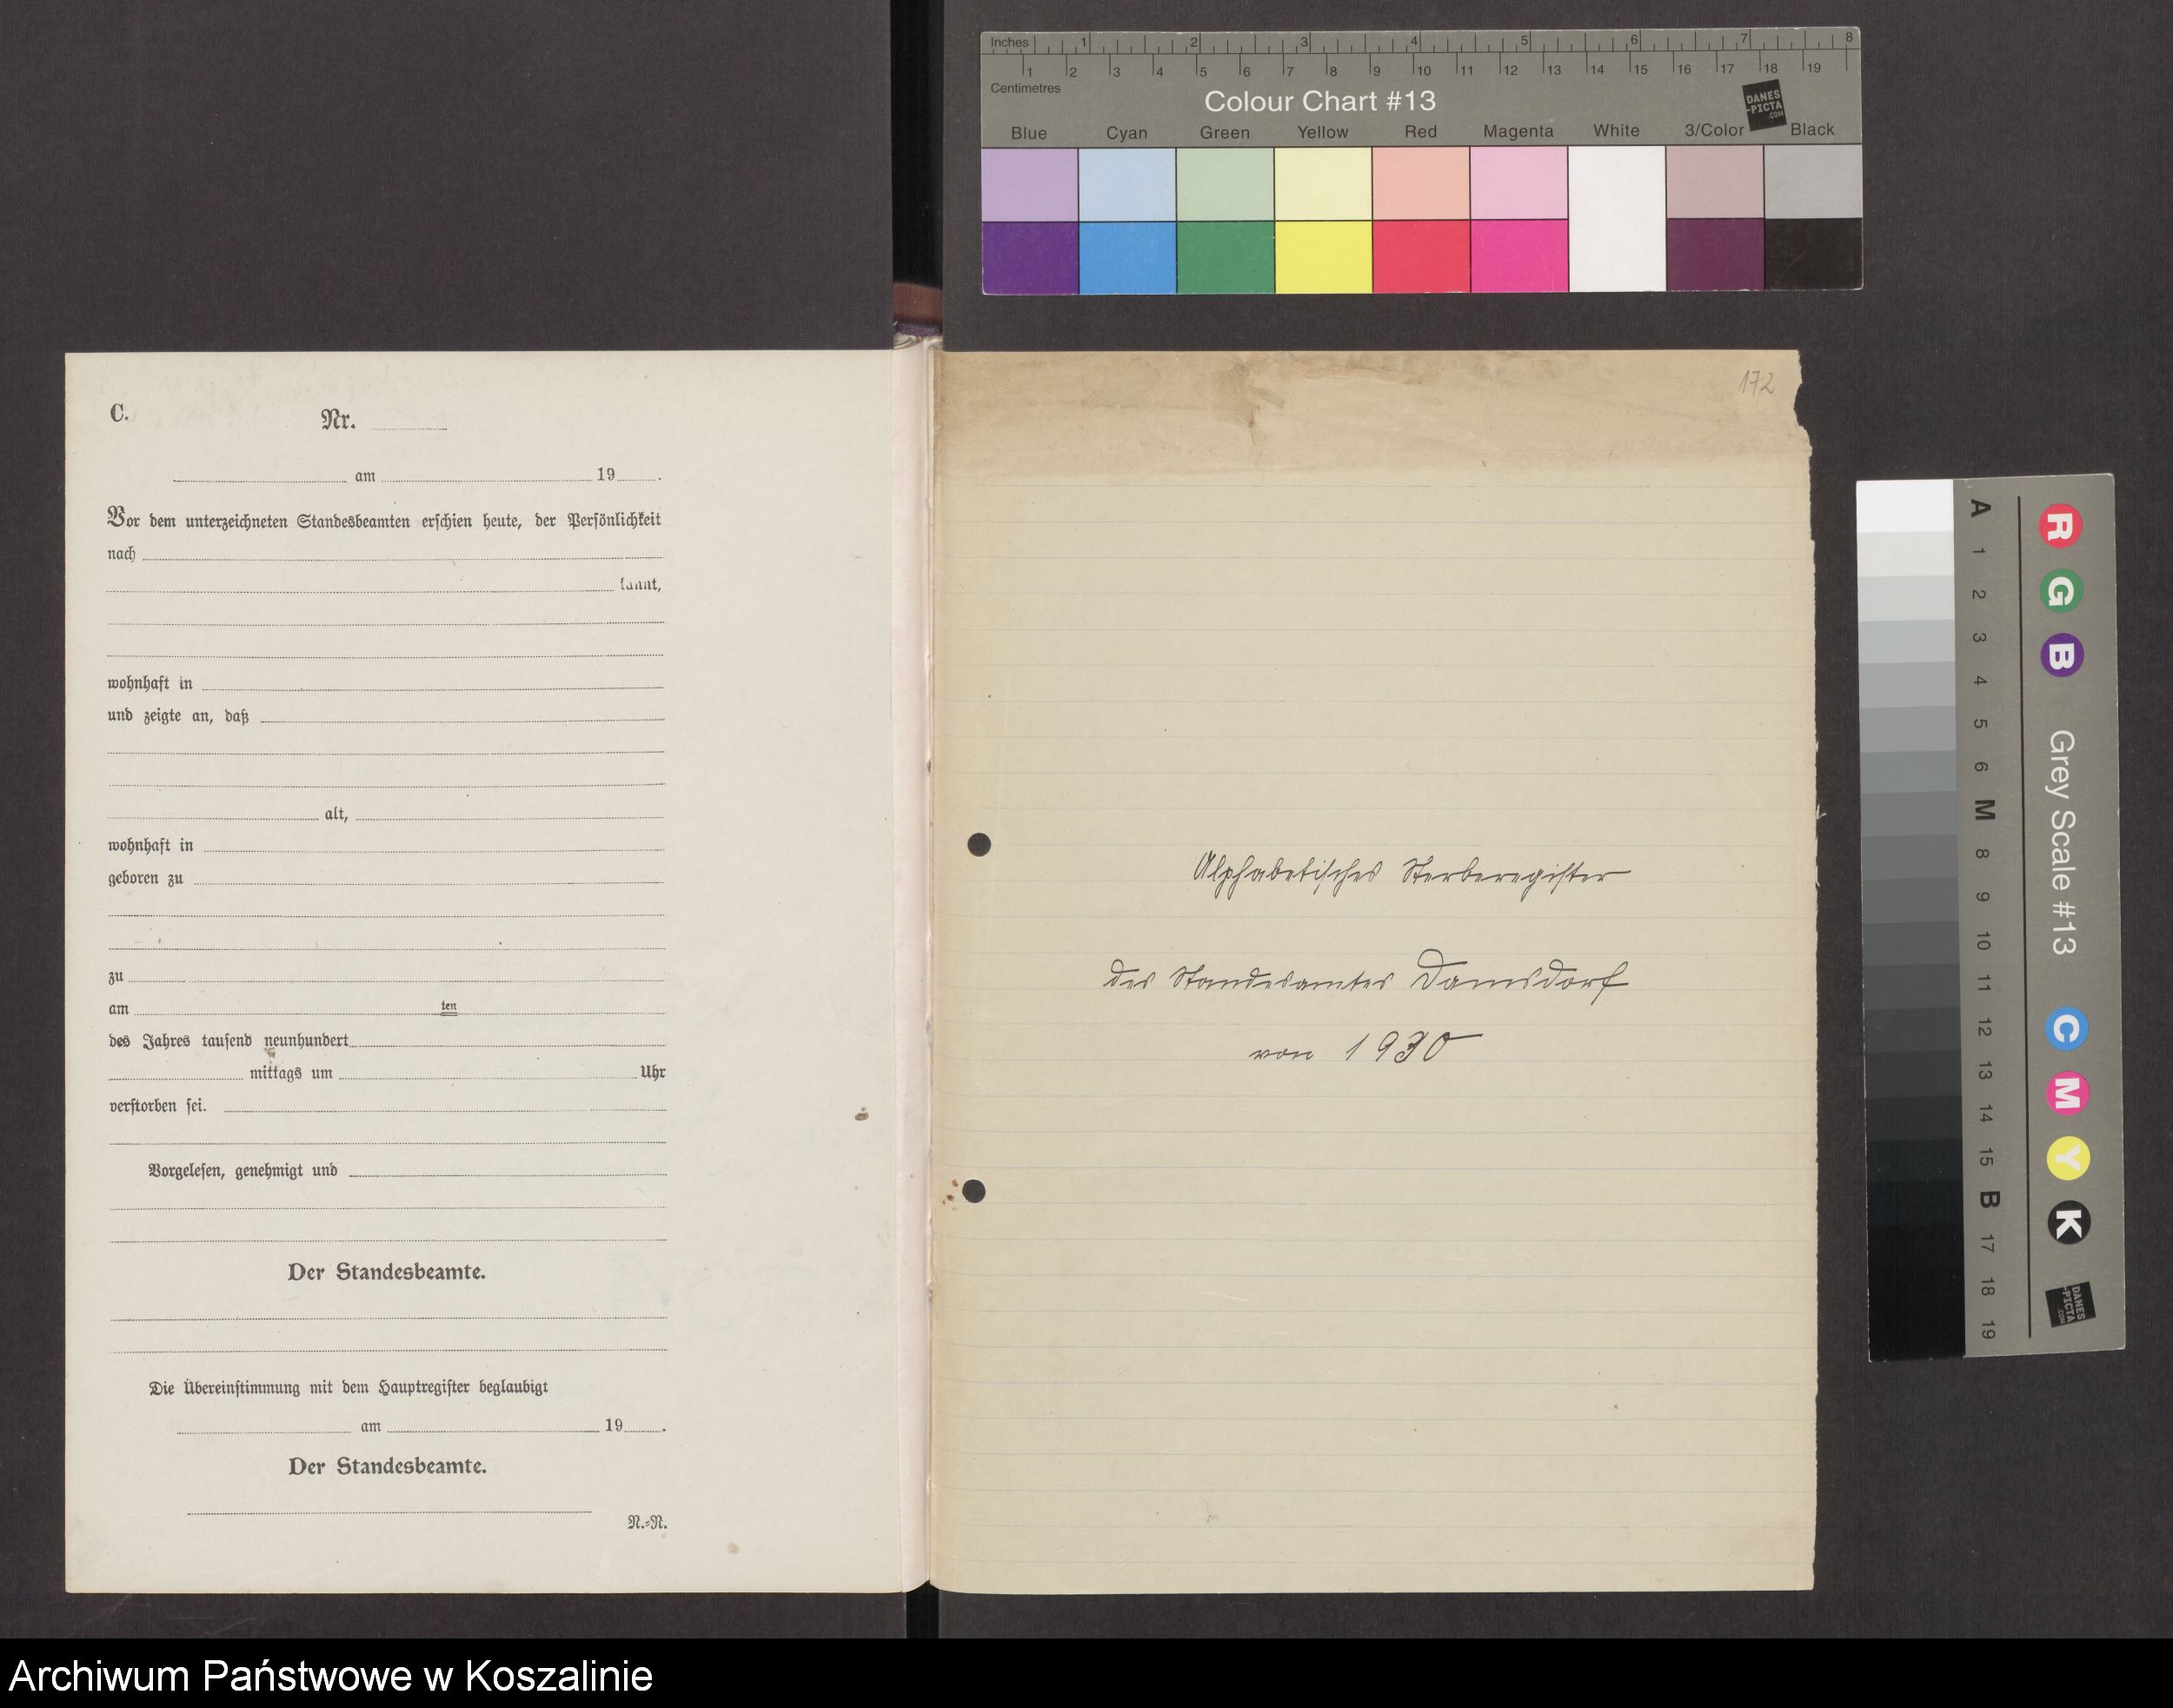 C.
Nr.
am 19 .
Vor dem unterzeichneten Standesbeamten erschien heute, der Persönlichkeit
nach
kannt,
wohnhaft in
und zeigte an, daß
alt,
wohnhaft in
geboren zu
zu
am ten
des Jahres tausend neunhundert
mittags um Uhr
verstorben sei.
Vorgelesen, genehmigt und
Der Standesbeamte.
Die Übereinstimmung mit dem Hauptregister beglaubigt
am 19 .
Der Standesbeamte.
N.=N.
172
Alphabetisches Sterberegister
des Standesamtes Damsdorf
von 1930
Inches 1 2 3 4 5 6 7 8
1 2 3 4 5 6 7 8 9 10 11 12 13 14 15 16 17 18 19
Centimetres
Colour Chart #13
DANES
-PICTA
.COM
Blue Cyan Green Yellow Red Magenta White 3/Color Black
A 1 2 3 4 5 6 M 8 9 10 11 12 13 14 15 B 17 18 19
R G B Grey Scale #13 C M Y K
DANES
-PICTA
.COM
Archiwum Państwowe w Koszalinie